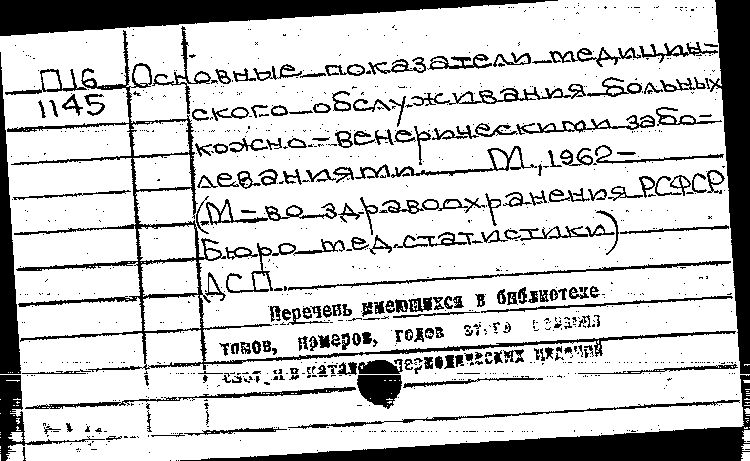 П16 Основные показатели медицин=
1145 ского обслуживания больных
кожно-венерическими забо=
леваниями. М., 1962-
(М-во здравоохранения РСФСР
Бюро мед.статистики)
ДСП.
Перечень имеющихся в библиотеке
томов, номеров, годов этого издания
см. в каталоге периодических изданий